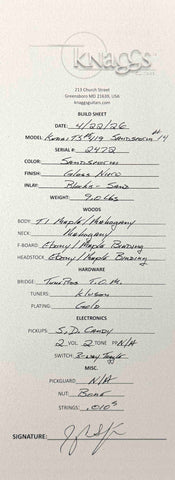 KNAGGS
GUITARS
213 Church Street
Greensboro MD 21639, USA
knaggsguitars.com
BUILD SHEET
DATE: 4/22/26
MODEL: Kenai T3 #/19 Sandstorm #14
SERIAL #: 2472
COLOR: Sandstorm
FINISH: Gloss Nitro
INLAY: Blocks - Sand
WEIGHT: 9.0 lbs
WOODS
BODY: T1 Maple/Mahogany
NECK: Mahogany
F-BOARD: Ebony/Maple Binding
HEADSTOCK: Ebony/Maple Binding
HARDWARE
BRIDGE: TonePros T.O.M.
TUNERS: Kluson
PLATING: Gold
ELECTRONICS
PICKUPS: S.D. Candy
2 VOL. 2 TONE N/A
SWITCH: 3-way Toggle
MISC.
PICKGUARD: N/A
NUT: Bone
STRINGS: .010s
SIGNATURE: